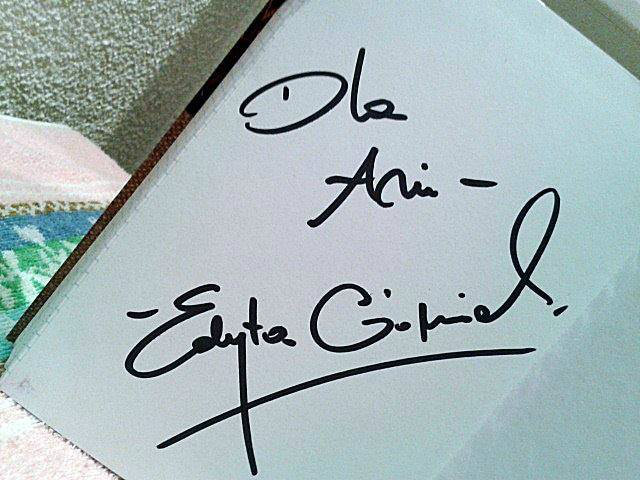 Dla
Ani -
- Edyta Górniak.